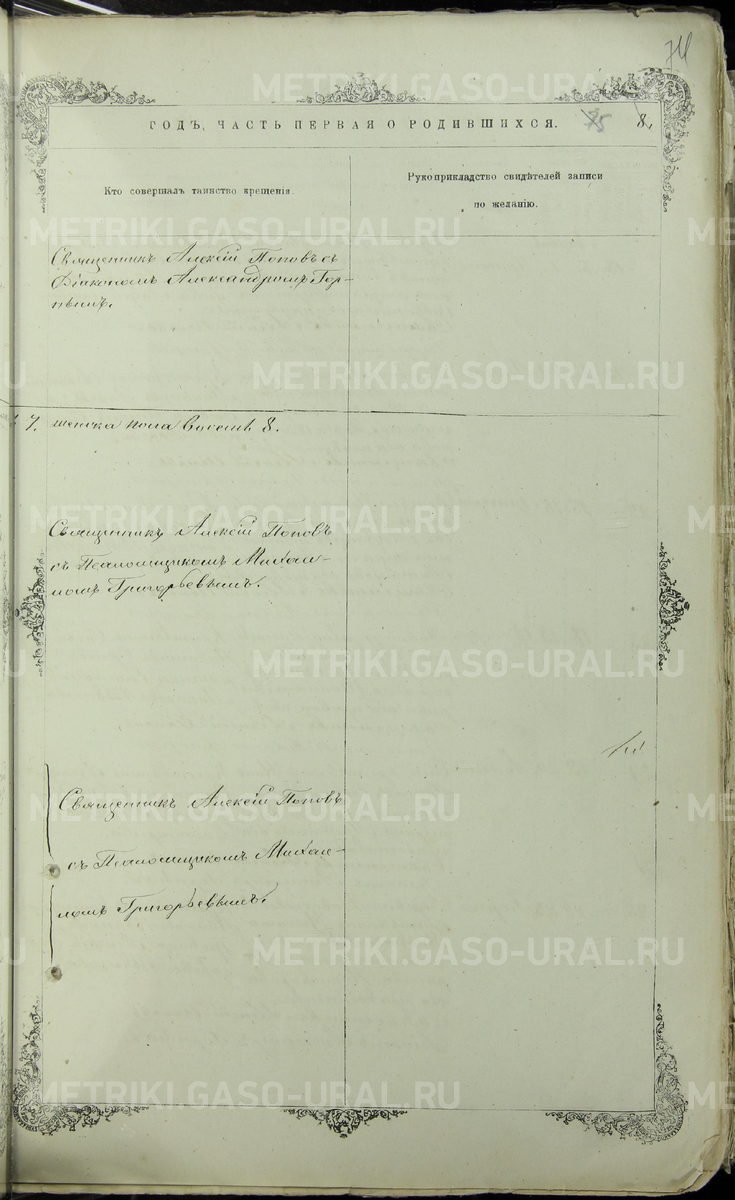 74
ГОДЪ, ЧАСТЬ ПЕРВАЯ О РОДИВШИХСЯ.
75
8.
Кто совершалъ таинство крещенія.
Рукоприкладство свидѣтелей записи
по желанію.
Священникъ Алексій Поповъ съ
Діакономъ Александромъ Гор-
нымъ.
7. женска пола восемь 8.
Священникъ Алексій Поповъ
съ Псаломщикомъ Михаи-
ломъ Григорьевымъ.
Священникъ Алексій Поповъ
съ Псаломщикомъ Михаи-
ломъ Григорьевымъ.
METRIKI.GASO-URAL.RU